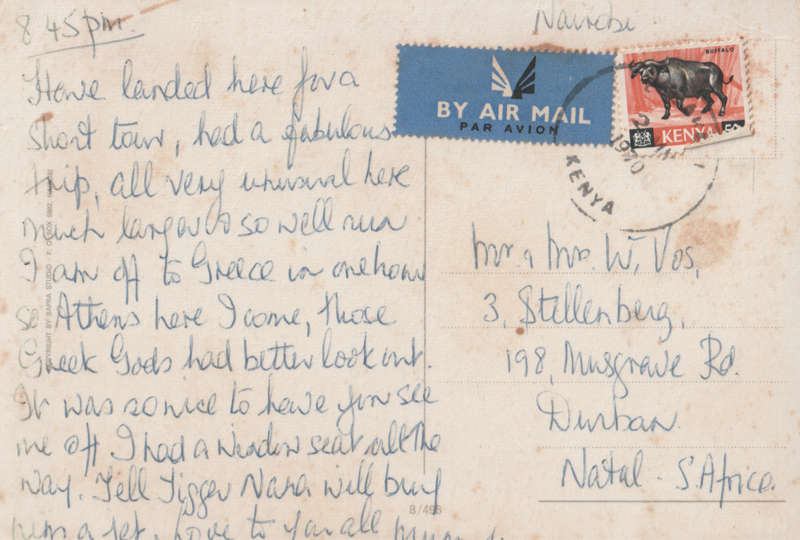 8 45pm.
Nairobi
Have landed here for a
short tour, had a fabulous
trip, all very unusual here
much larger & so well run
I am off to Greece in one hour
so Athens here I come, those
Greek Gods had better look out.
It was so nice to have you see
me off I had a window seat all the
way. Tell Tigger Nana will buy
him a jet. Love to you all
BY AIR MAIL
PAR AVION
BUFFALO
KENYA
1970
KENYA
Mr. & Mrs. W. Vos,
3, Stellenberg,
198, Musgrave Rd.
Durban
Natal - S. Africa.
COPYRIGHT BY SAPRA STUDIO - P. O. BOX
8/498